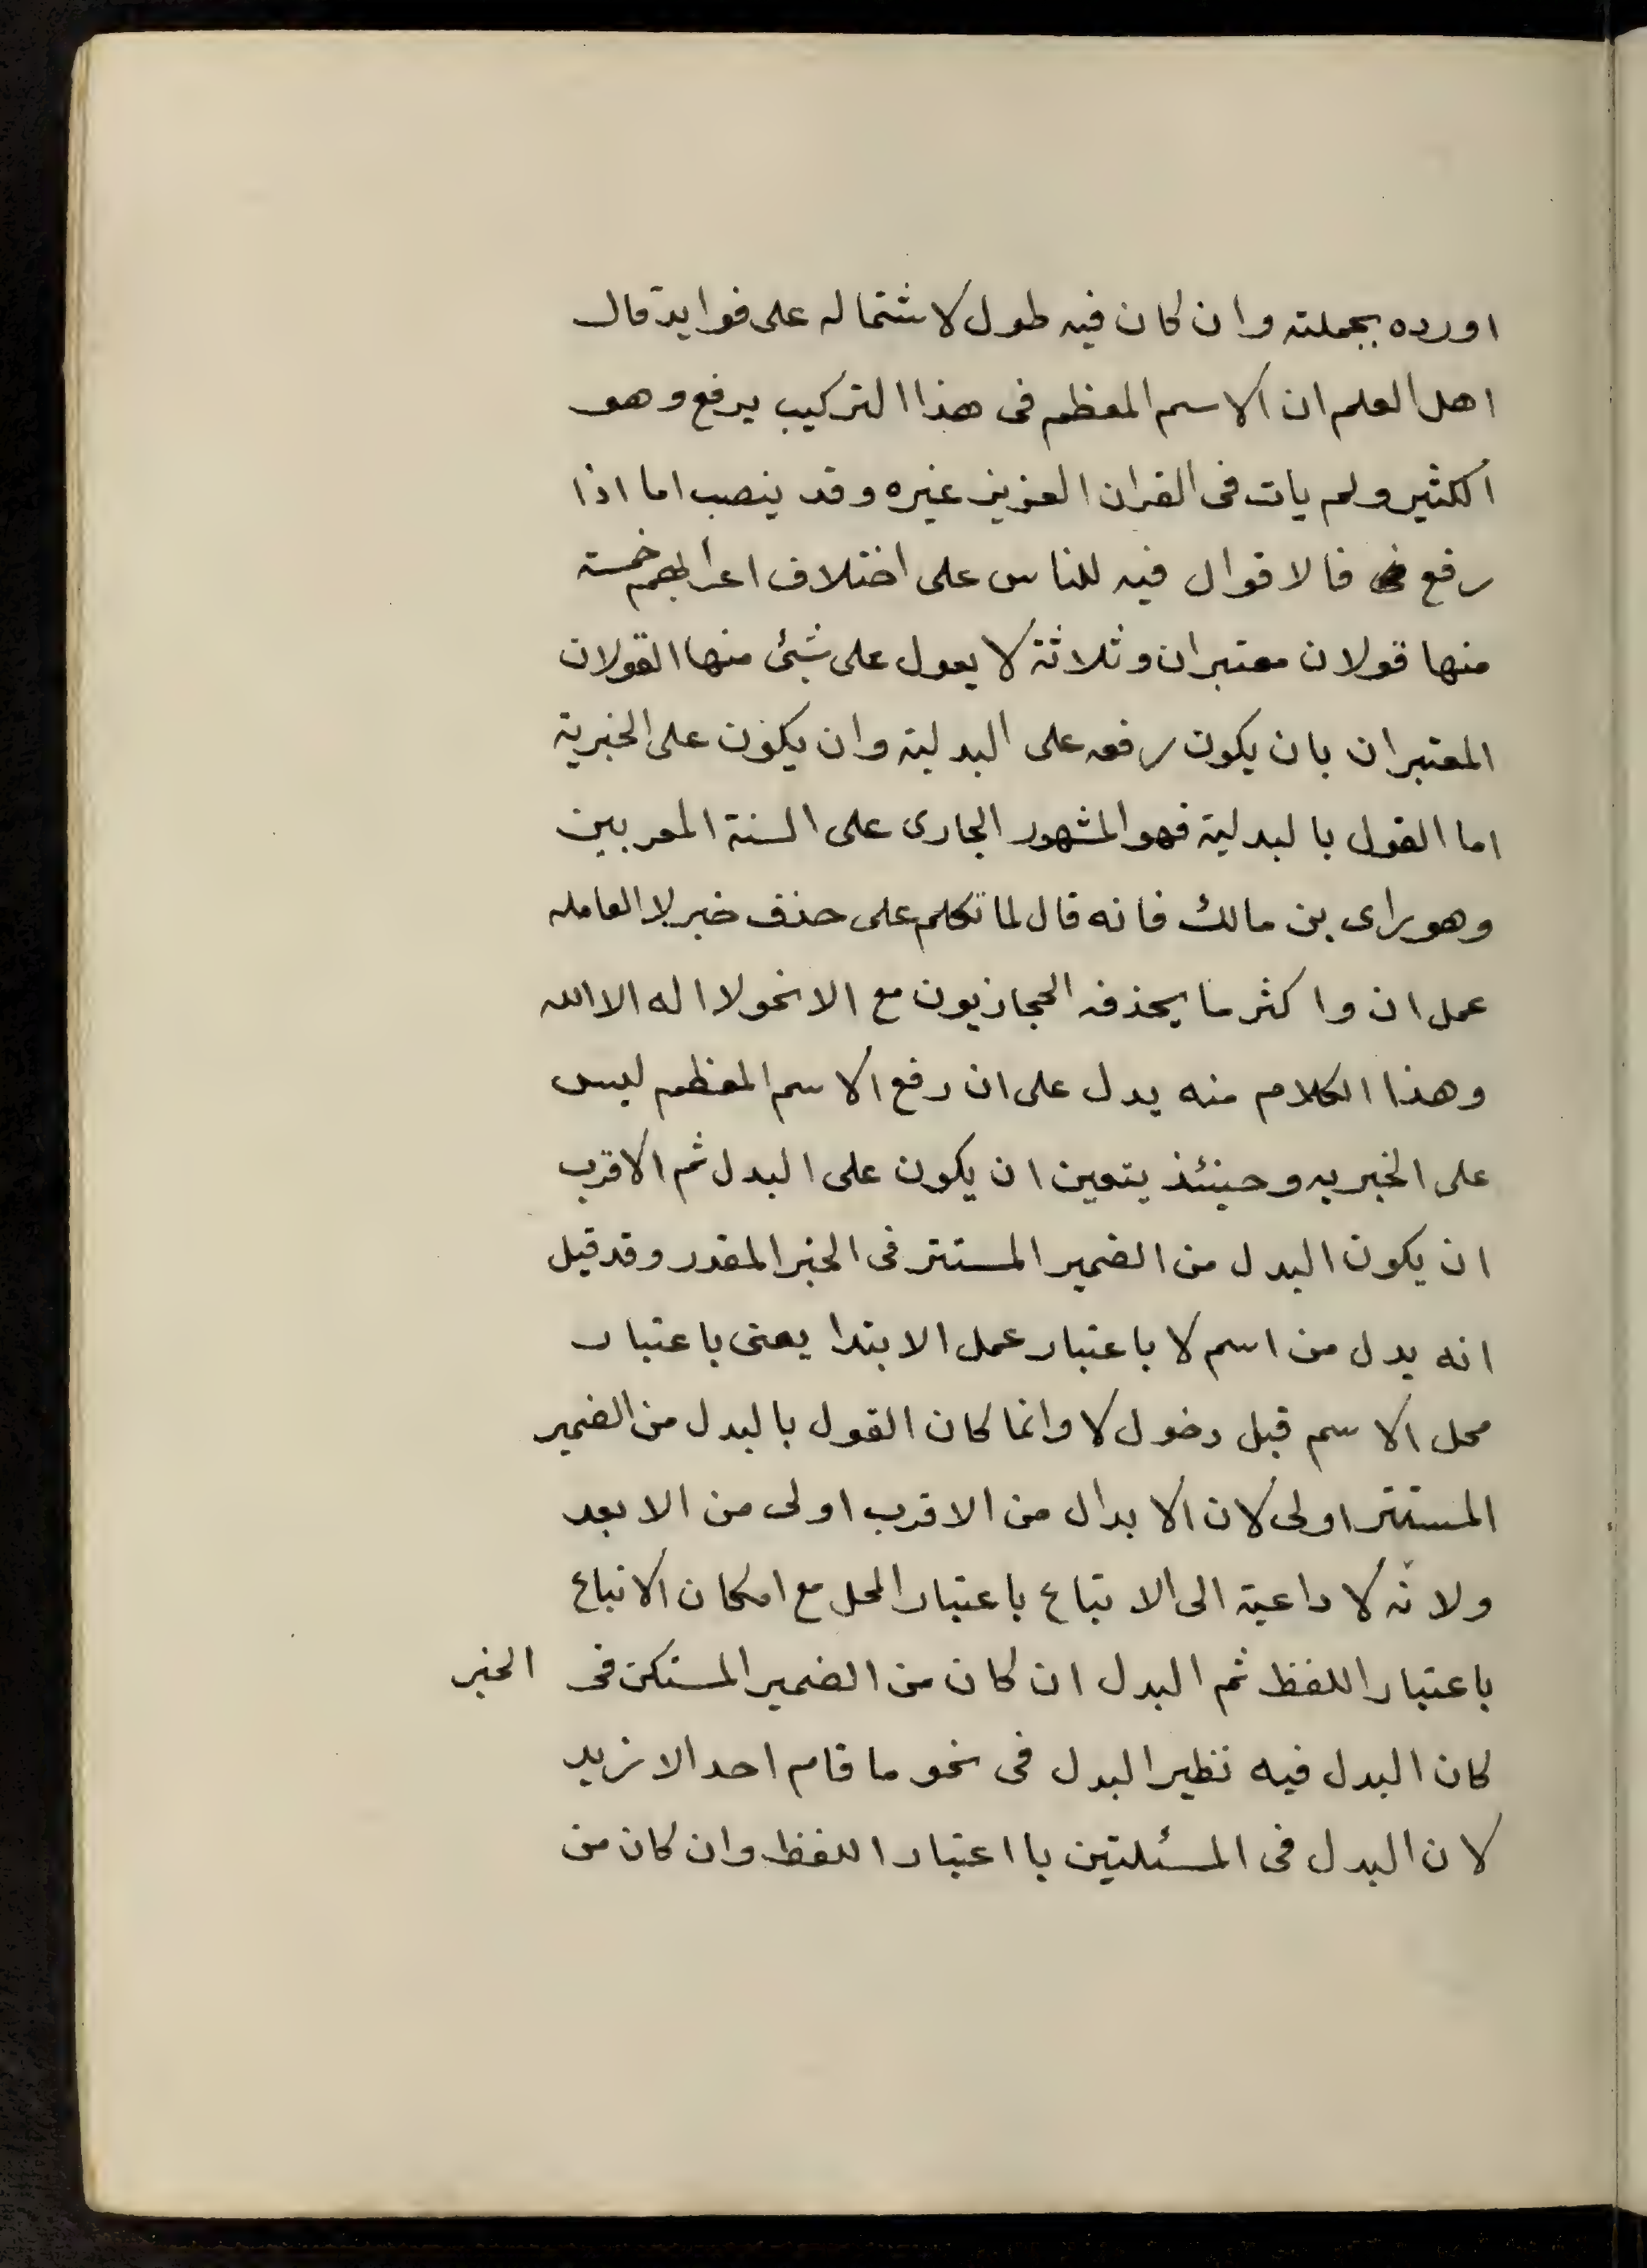 اورده بجملته وان كان فيه طول لاشتماله على فوايد قال
اهل العلم ان الاسم المعظم فى هذا التركيب يرفع وهو
الكثير ولم يات فى القران العزيز غيره وقد ينصب اما اذا
رفع فالاقوال فيه للناس على اختلاف اعرابهم خمسة
منها قولان معتبران وثلاثة لا يعول على شئ منها القولان
المعتبران بان يكون رفعه على البدلية وان يكون على الخبرية
اما القول بالبدلية فهو المشهور الجارى على السنة المعربين
وهو راى بن مالك فانه قال لما تكلم على حذف خبر لا العامله
عمل ان واكثر ما يحذفه الحجازيون مع الا نحو لا اله الا الله
وهذا الكلام منه يدل على ان رفع الاسم المعظم ليس
على الخبريه وحينئذ يتعين ان يكون على البدل ثم الاقرب
ان يكون البدل من الضمير المستتر فى الخبر المقدر وقد قيل
انه بدل من اسم لا باعتبار عمل الابتدا يعنى باعتبار
محل الاسم قبل دخول لا وانما كان القول بالبدل من الضمير
المستتر اولى لان الابدال من الاقرب اولى من الابعد
ولانه لا داعية الى الاتباع باعتبار المحل مع امكان الاتباع
باعتبار اللفظ ثم البدل ان كان من الضمير المستكن فى الخبر
كان البدل فيه نظير البدل فى نحو ما قام احد الا زيد
لان البدل فى المسئلتين بااعتبار اللفظ وان كان من